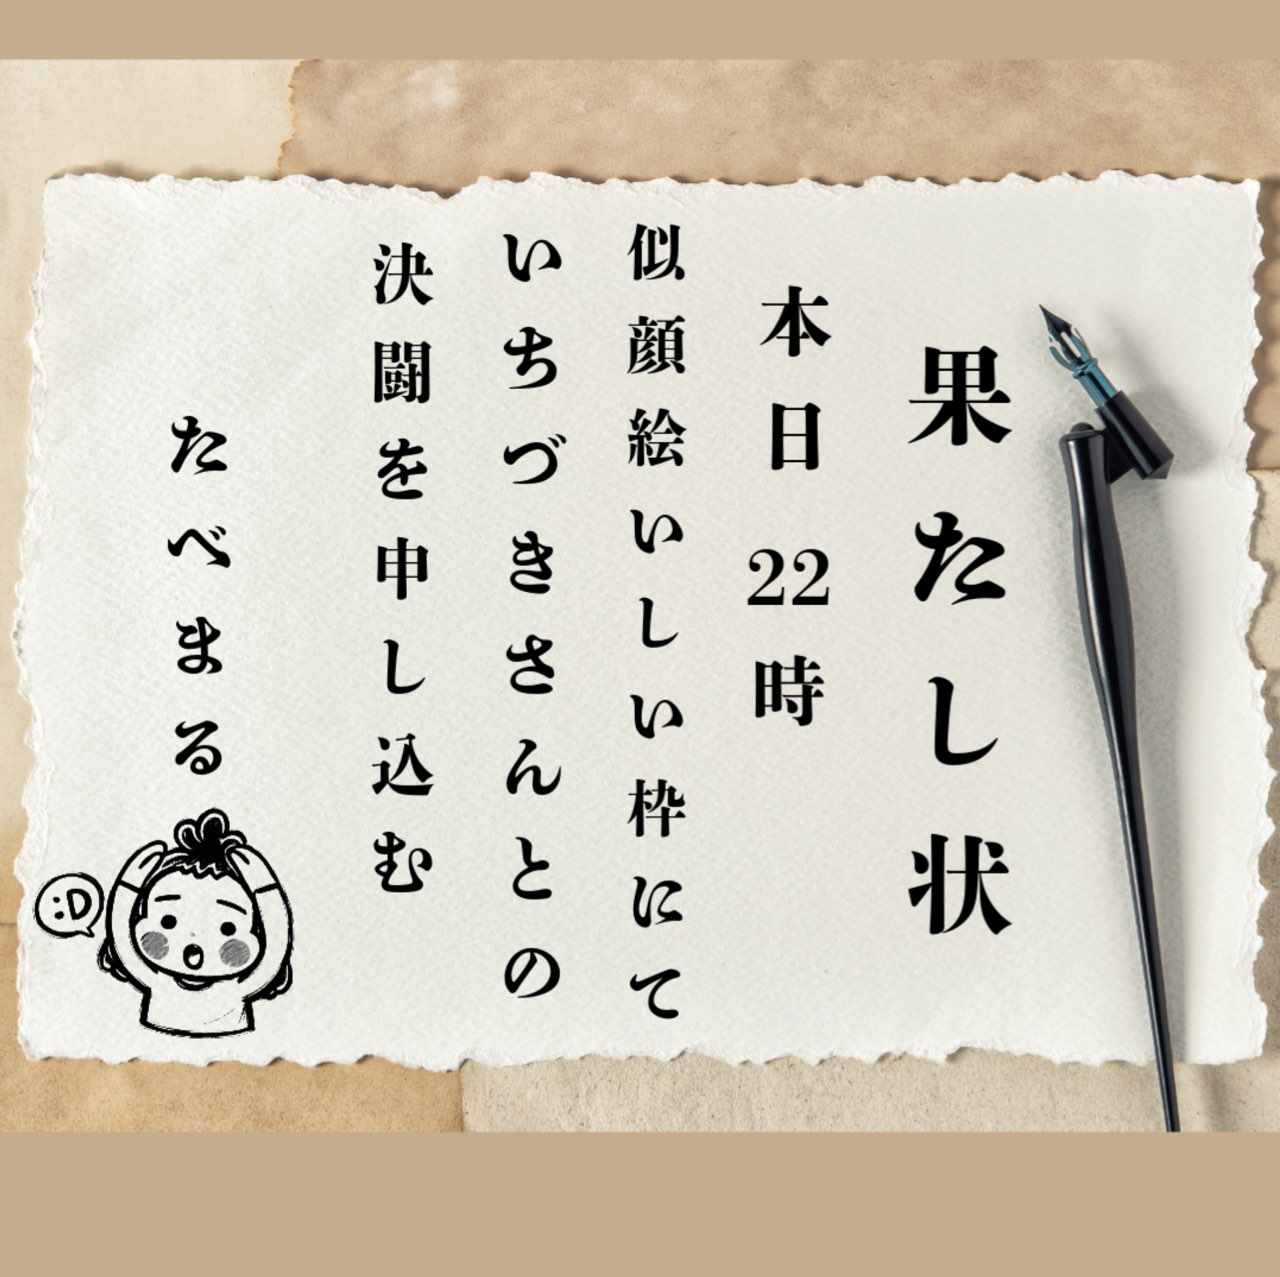 果たし状
本日22時
似顔絵いしい枠にて
いちづきさんとの
決闘を申し込む
たべまる
:D